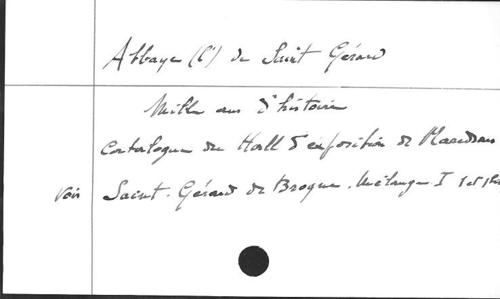 Abbaye (L') de Saint Gérard
Mille ans d'histoire
Catalogue du Hall d'exposition de
voir Saint. Gérard de Brogne. Mélange I